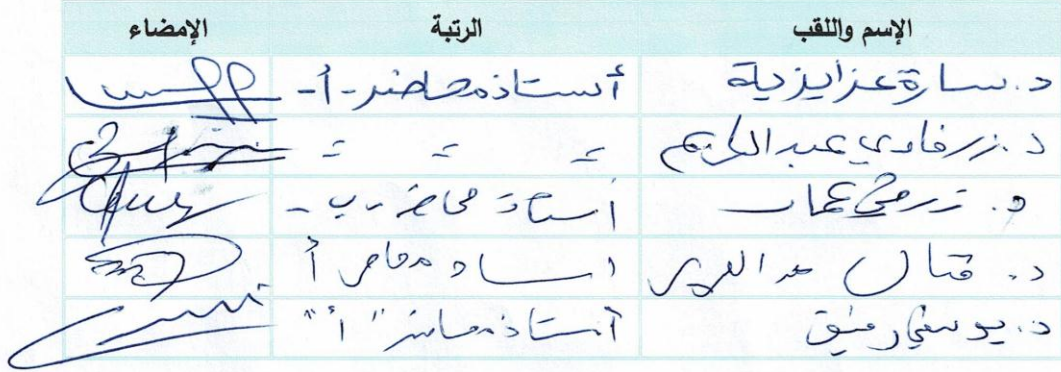 الإسم واللقب الرتبة الإمضاء
د. سارة عزايزية أستاذ محاضر -أ-
د. زرفاوي عبد الكريم = = =
د. زرمي عمار أستاذ محاضر -ب-
د. قتال عبد العزيز استاذ محاضر أ
د. يوسفي رفيق أستاذ محاضر "أ"